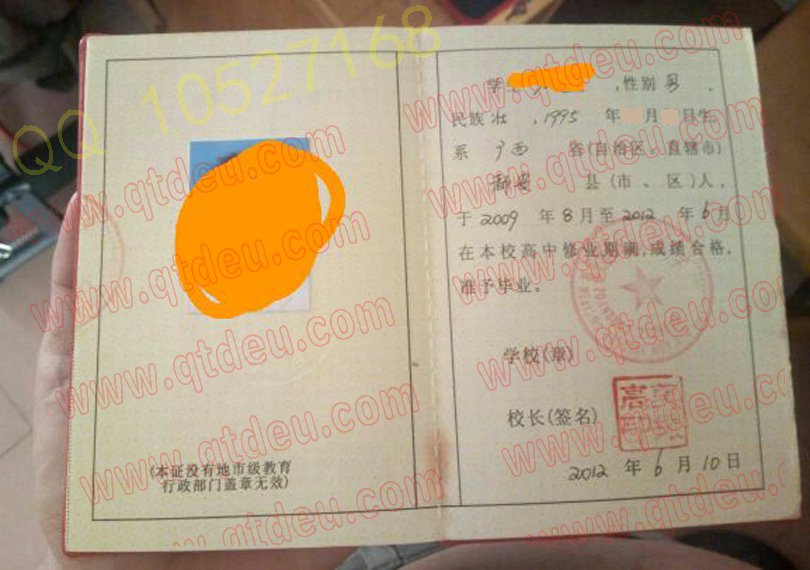 QQ 10527168
www.qtdeu.com
www.qtdeu.com
www.qtdeu.com
www.qtdeu.com
www.qtdeu.com
www.qtdeu.com
www.qtdeu.com
www.qtdeu.com
(本证没有地市级教育
行政部门盖章无效)
学 ,性别 男 ,
民族 壮 , 1995 年 月 日生,
系 广西 省(自治区、直辖市)
县(市、区)人,
于 2009 年 8 月至 2012 年 6 月
在本校高中修业期满,成绩合格,
准予毕业。
学校(章)
校长(签名)
2012 年 6 月 10 日